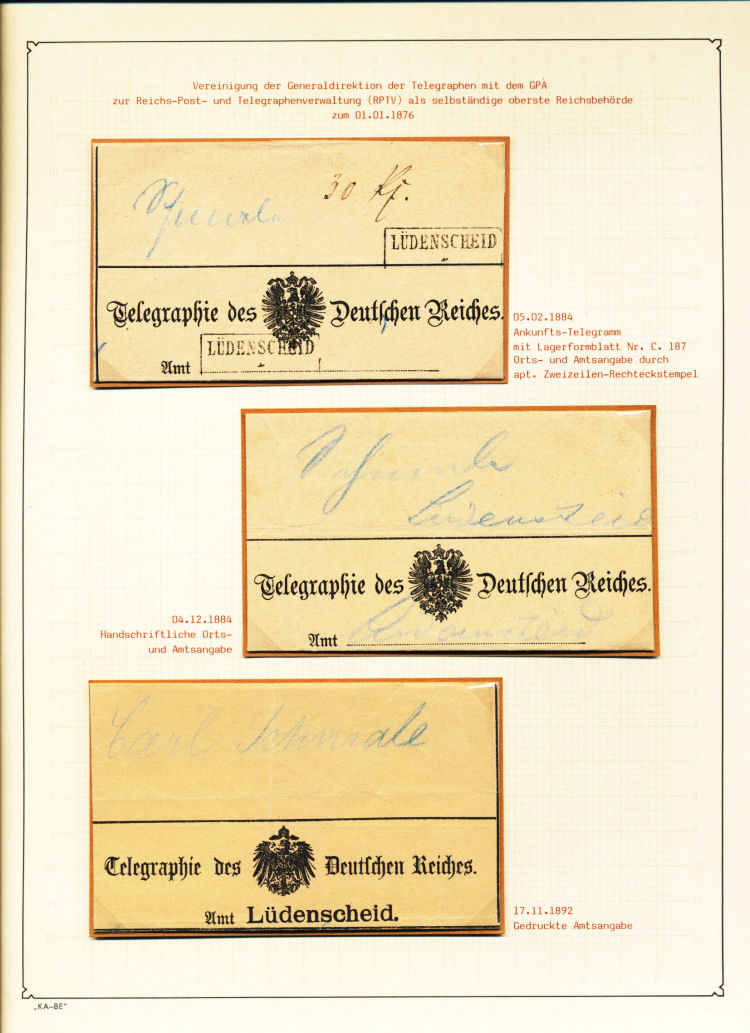 Vereinigung der Generaldirektion der Telegraphen mit dem GPÀ
zur Reichs-Post- und Telegraphenverwaltung (RPTV) als selbständige oberste Reichsbehörde
zum 01.01.1876
30 Pf.
LÜDENSCHEID
Telegraphie des Deutschen Reiches.
LÜDENSCHEID
Amt
05.02.1884
Ankunfts-Telegramm
mit Lagerformblatt Nr. C. 187
Orts- und Amtsangabe durch
apt. Zweizeilen-Rechteckstempel
Lüdenscheid
Telegraphie des Deutschen Reiches.
Amt
04.12.1884
Handschriftliche Orts-
und Amtsangabe
Carl Schmale
Telegraphie des Deutschen Reiches.
Amt Lüdenscheid.
17.11.1892
Gedruckte Amtsangabe
„KA–BE"